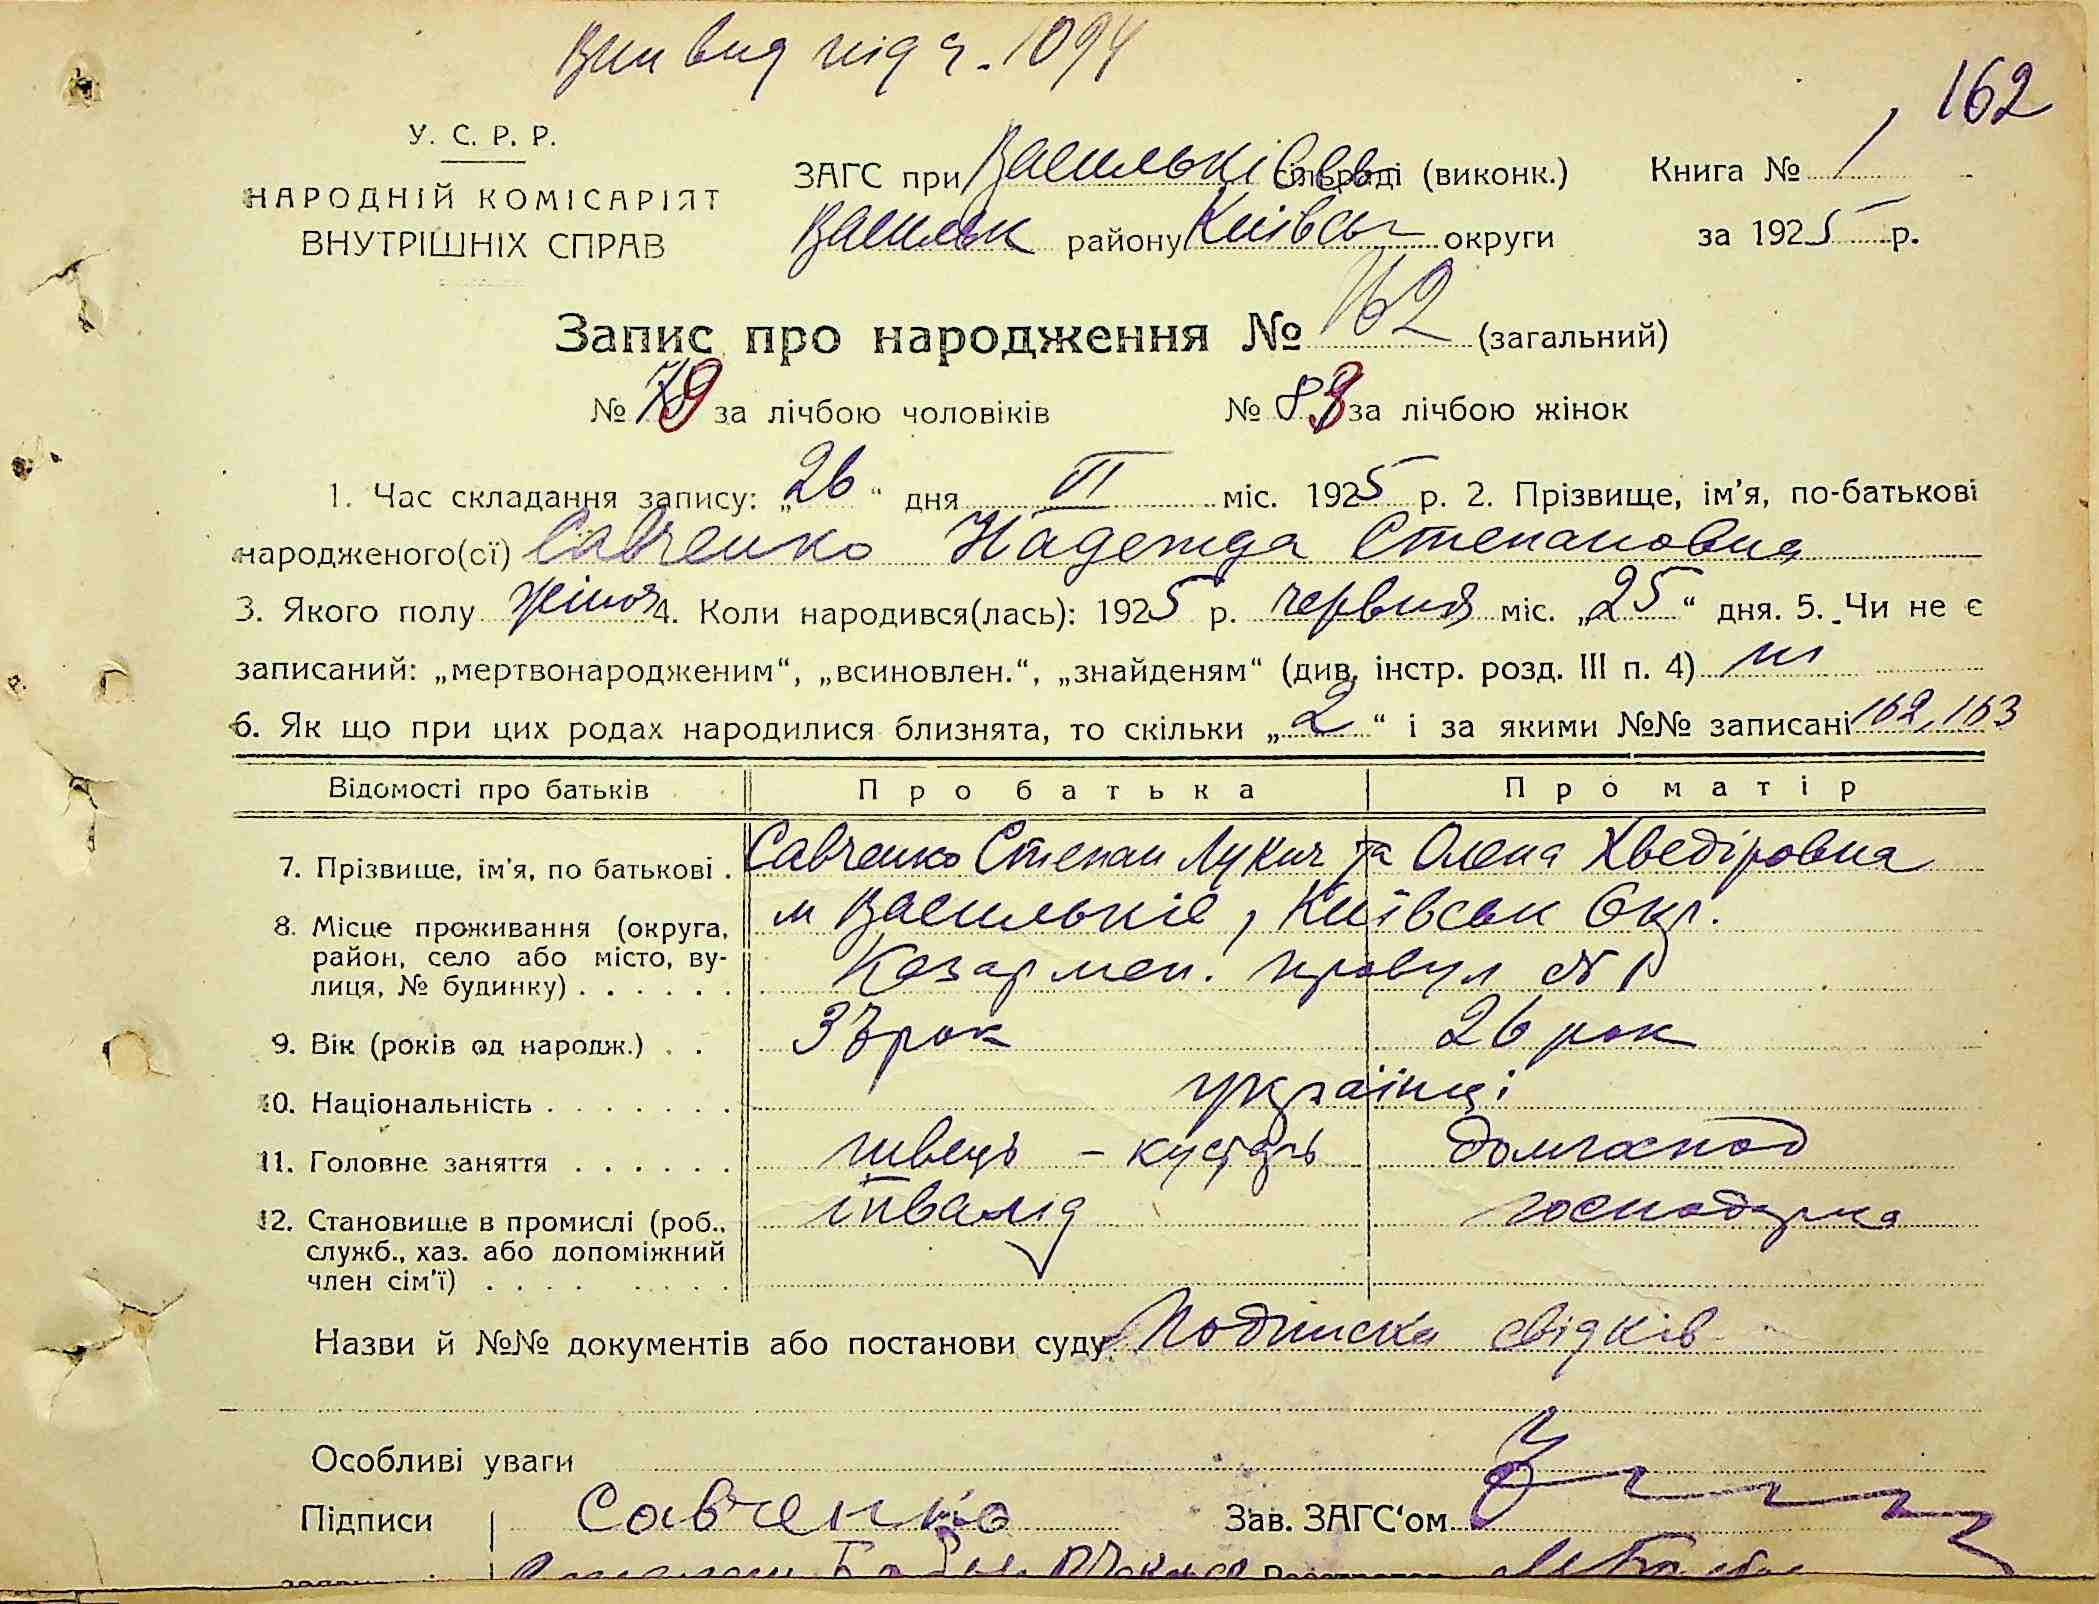 Вип вид під ч. 1094
162
У. С. Р. Р.
НАРОДНІЙ КОМІСАРІЯТ
ВНУТРІШНІХ СПРАВ
ЗАГС при Васильків сільраді (виконк.) Книга № 1
Васильк району Київськ округи за 1925 р.
Запис про народження № 162 (загальний)
№ 79 за лічбою чоловіків № 83 за лічбою жінок
1. Час складання запису: „26“ дня VI міс. 1925 р. 2. Прізвище, ім'я, по-батькові
народженого(сї) Савченко Надежда Степановна
3. Якого полу жіноч 4. Коли народився(лась): 1925 р. червня міс. „25“ дня. 5. Чи не є
записаний: „мертвонародженим“, „всиновлен.“, „знайденям“ (див. інстр. розд. III п. 4) ні
6. Як що при цих родах народилися близнята, то скільки „2“ і за якими №№ записані 162, 163
Відомості про батьків Про батька Про матір
7. Прізвище, ім'я, по батькові . Савченко Степан Лукич та Олена Хведіровна
8. Місце проживання (округа, м Васильків, Київськ Окр.
район, село або місто, ву-
лиця, № будинку) . . . . . . Казармен. провул № 1
9. Вік (років од народж.) . . рок 26 рок
10. Національність . . . . . . . українці
11. Головне заняття . . . . . . швець - кустарь домгоспод
12. Становище в промислі (роб., інвалід господарка
служб., хаз. або допоміжний
член сім'ї) . . . . . . . . .
Назви й №№ документів або постанови суду Подписка свідків
Особливі уваги
Підписи Савченко Зав. ЗАГС'ом